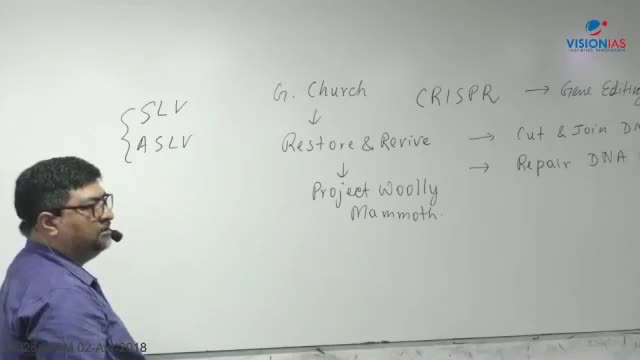 VISIONIAS
INSPIRING INNOVATION
SLV
ASLV
G. Church
↓
Restore & Revive
↓
Project Woolly
Mammoth.
CRISPR → Gene Editing
→ Cut & Join
→ Repair DNA
02-A 2018